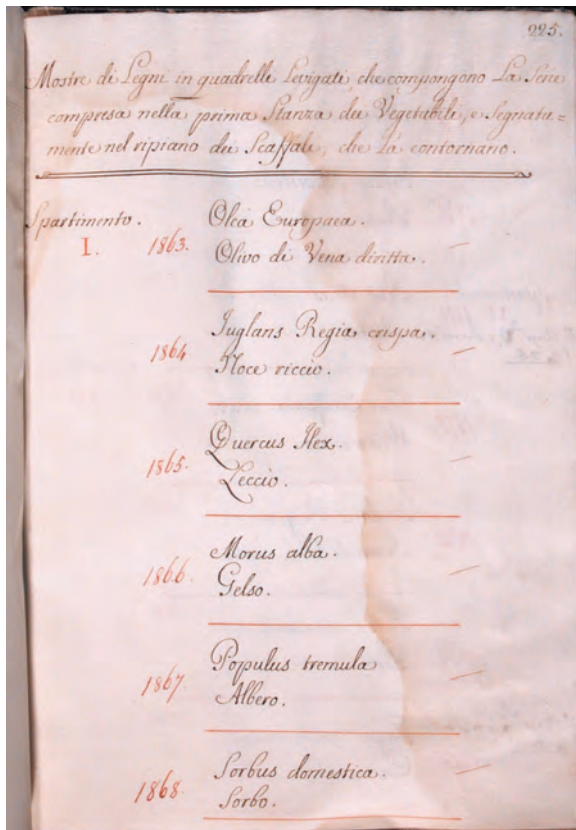 225.
Mostre di Legni in quadrelle Levigati che compongono La Serie
compresa nella prima Stanza dei Vegetabili, e Segnata=
mente nel ripiano dei Scaffali, che La contornano.
Spartimento.
I.
1863.
Olea Europaea.
Olivo di Vena diritta.
1864
Juglans Regia crispa.
Noce riccio.
1865.
Quercus Ilex.
Leccio.
1866.
Morus alba.
Gelso.
1867.
Populus tremula
Albero.
1868.
Sorbus domestica.
Sorbo.